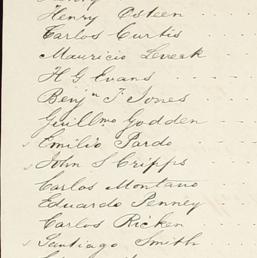 Henry Osteen
Carlos Curtis
Mauricio Leveck
H G Evans
Benjn F. Jones
Guillmo Godden
Emilio Pardo
John S Cripps
Carlos Montano
Eduardo Penney
Carlos Ricken
Santiago Smith